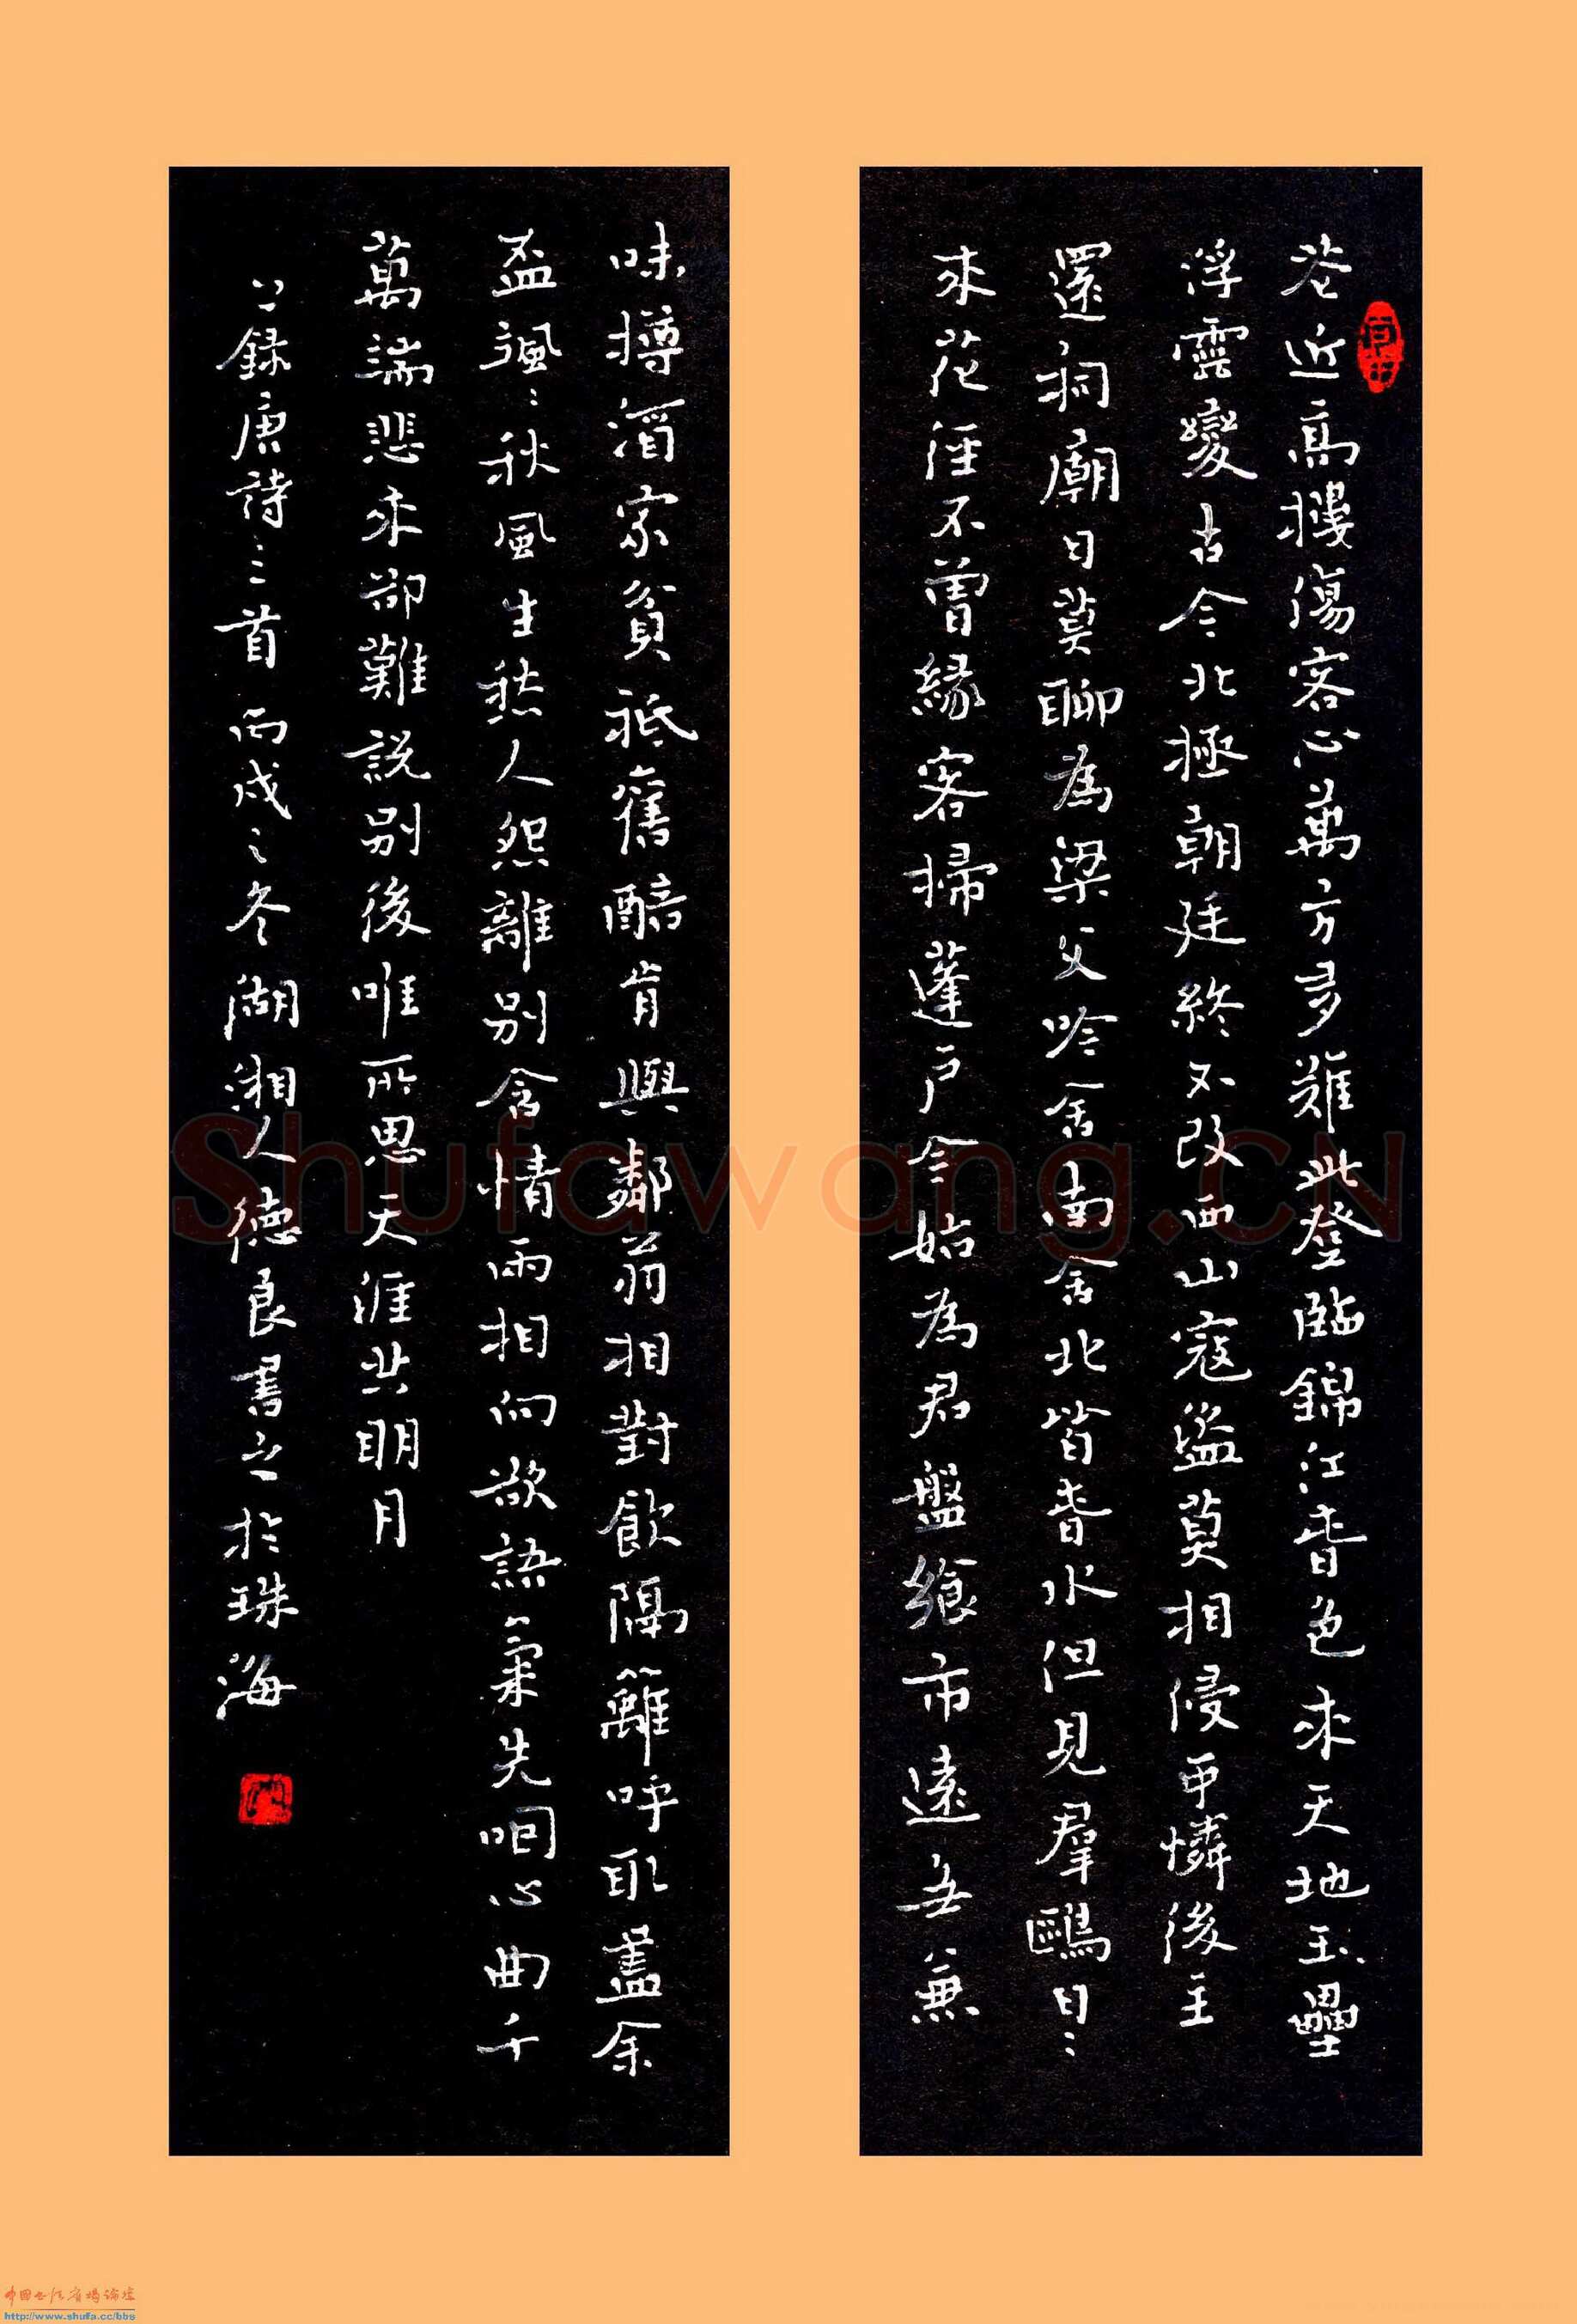 花近高樓傷客心萬方多難此登臨錦江春色來天地玉壘
浮雲變古今北極朝廷終不改西山寇盜莫相侵可憐後主
還祠廟日莫聊為梁父吟舍南舍北皆春水但見羣鷗日〻
來花徑不曾緣客掃蓬戶今始為君盤飧市遠無兼
味撙酒家貧祗舊醅肯與鄰翁相對飲隔籬呼取盡余
盃颯〻秋風生愁人怨離別含情兩相向欲語氣先咽心曲千
萬端悲來卻難說別後唯所思天涯共明月
以上錄唐詩三首丙戌之冬湖湘人德良書之於珠海
Shufawang.CN
中国书法广场论坛
http://www.shufa.cc/bbs